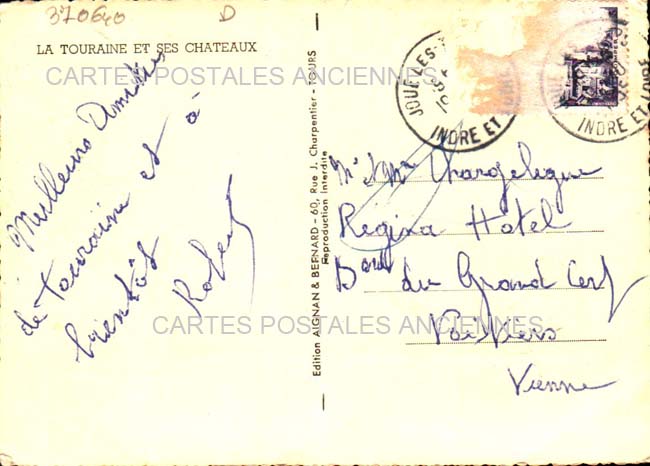 370640 D
LA TOURAINE ET SES CHATEAUX
CARTES POSTALES ANCIENNES
Meilleures Amitiés
de Touraine et à
bientôt
Robert
Edition AIGNAN & BERNARD - 60, Rue J. Charpentier - TOURS
Reproduction Interdite
JOUE-LES-
INDRE ET LOIRE
INDRE ET LOIRE
Mr Mme
Regina Hotel
Bard du Grand Cerf
CARTES POSTALES ANCIENNES
Poitiers
Vienne